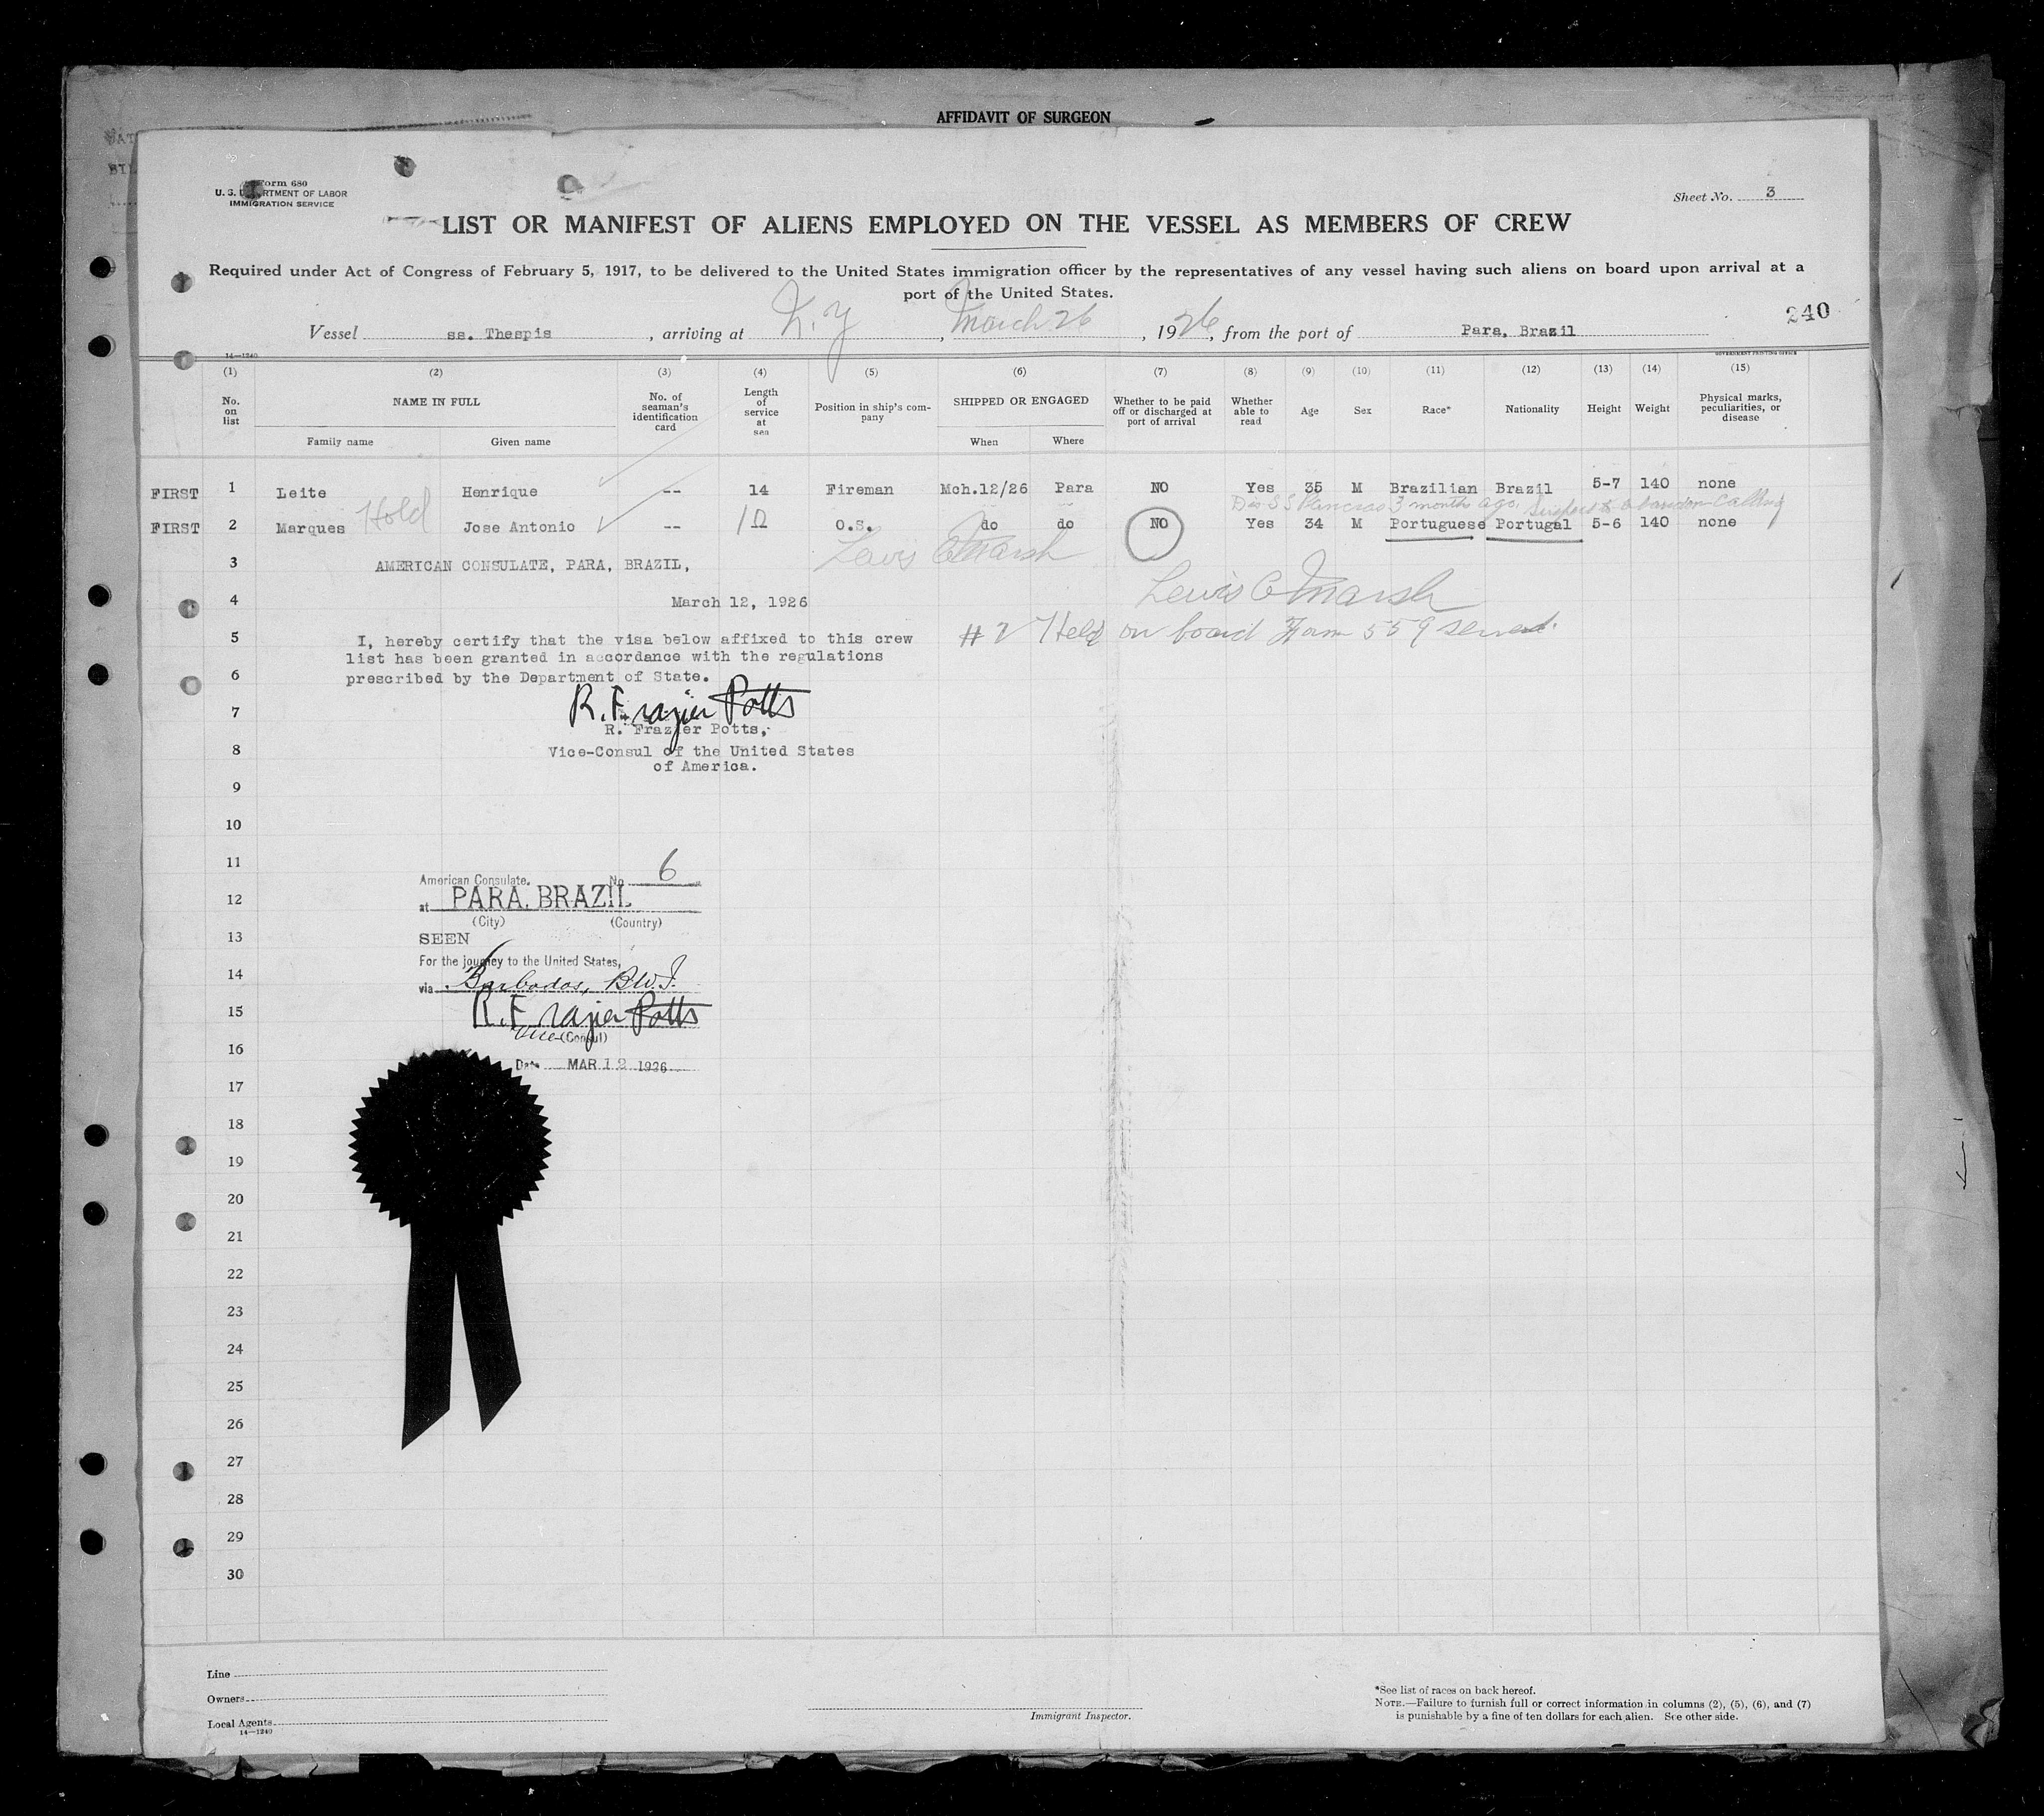 AFFIDAVIT OF SURGEON
Form 680
U. S. DEPARTMENT OF LABOR
IMMIGRATION SERVICE
Sheet No. 3
LIST OR MANIFEST OF ALIENS EMPLOYED ON THE VESSEL AS MEMBERS OF CREW
Required under Act of Congress of February 5, 1917, to be delivered to the United States immigration officer by the representatives of any vessel having such aliens on board upon arrival at a
port of the United States.
240
Vessel ss. Thespis, arriving at N.Y, March 26, 1926, from the port of Para, Brazil
14—1240 GOVERNMENT PRINTING OFFICE
(1) (2) (3) (4) (5) (6) (7) (8) (9) (10) (11) (12) (13) (14) (15)
No. on list NAME IN FULL No. of seaman's identification card Length of service at sea Position in ship's company SHIPPED OR ENGAGED Whether to be paid off or discharged at port of arrival Whether able to read Age Sex Race* Nationality Height Weight Physical marks, peculiarities, or disease
Family name Given name When Where
FIRST 1 Leite Henrique -- 14 Fireman Mch.12/26 Para NO Yes 35 M Brazilian Brazil 5-7 140 none
Dis. SS 3 months ago. Suspect to abandon Calling
FIRST 2 Marques Hold Jose Antonio -- 10 O.S. do do NO Yes 34 M Portuguese Portugal 5-6 140 none
Lewis C Marsh
3 AMERICAN CONSULATE, PARA, BRAZIL,
Lewis C Marsh
4 March 12, 1926
5 I, hereby certify that the visa below affixed to this crew
#2 Held on board Form 559 served.
list has been granted in accordance with the regulations
6 prescribed by the Department of State.
R. Frazier Potts
7
R. Frazier Potts,
8 Vice-Consul of the United States
of America.
9
10
11
American Consulate. No. 6
12 at PARA, BRAZIL
(City) (Country)
13 SEEN
For the journey to the United States,
14 via Barbados, B.W.I.
15 R. Frazier Potts
Vice (Consul)
16
Date MAR 12 1926
17
18
19
20
21
22
23
24
25
26
27
28
29
30
Line
Owners
Local Agents
14—1240
Immigrant Inspector.
*See list of races on back hereof.
NOTE.—Failure to furnish full or correct information in columns (2), (5), (6), and (7)
is punishable by a fine of ten dollars for each alien. See other side.